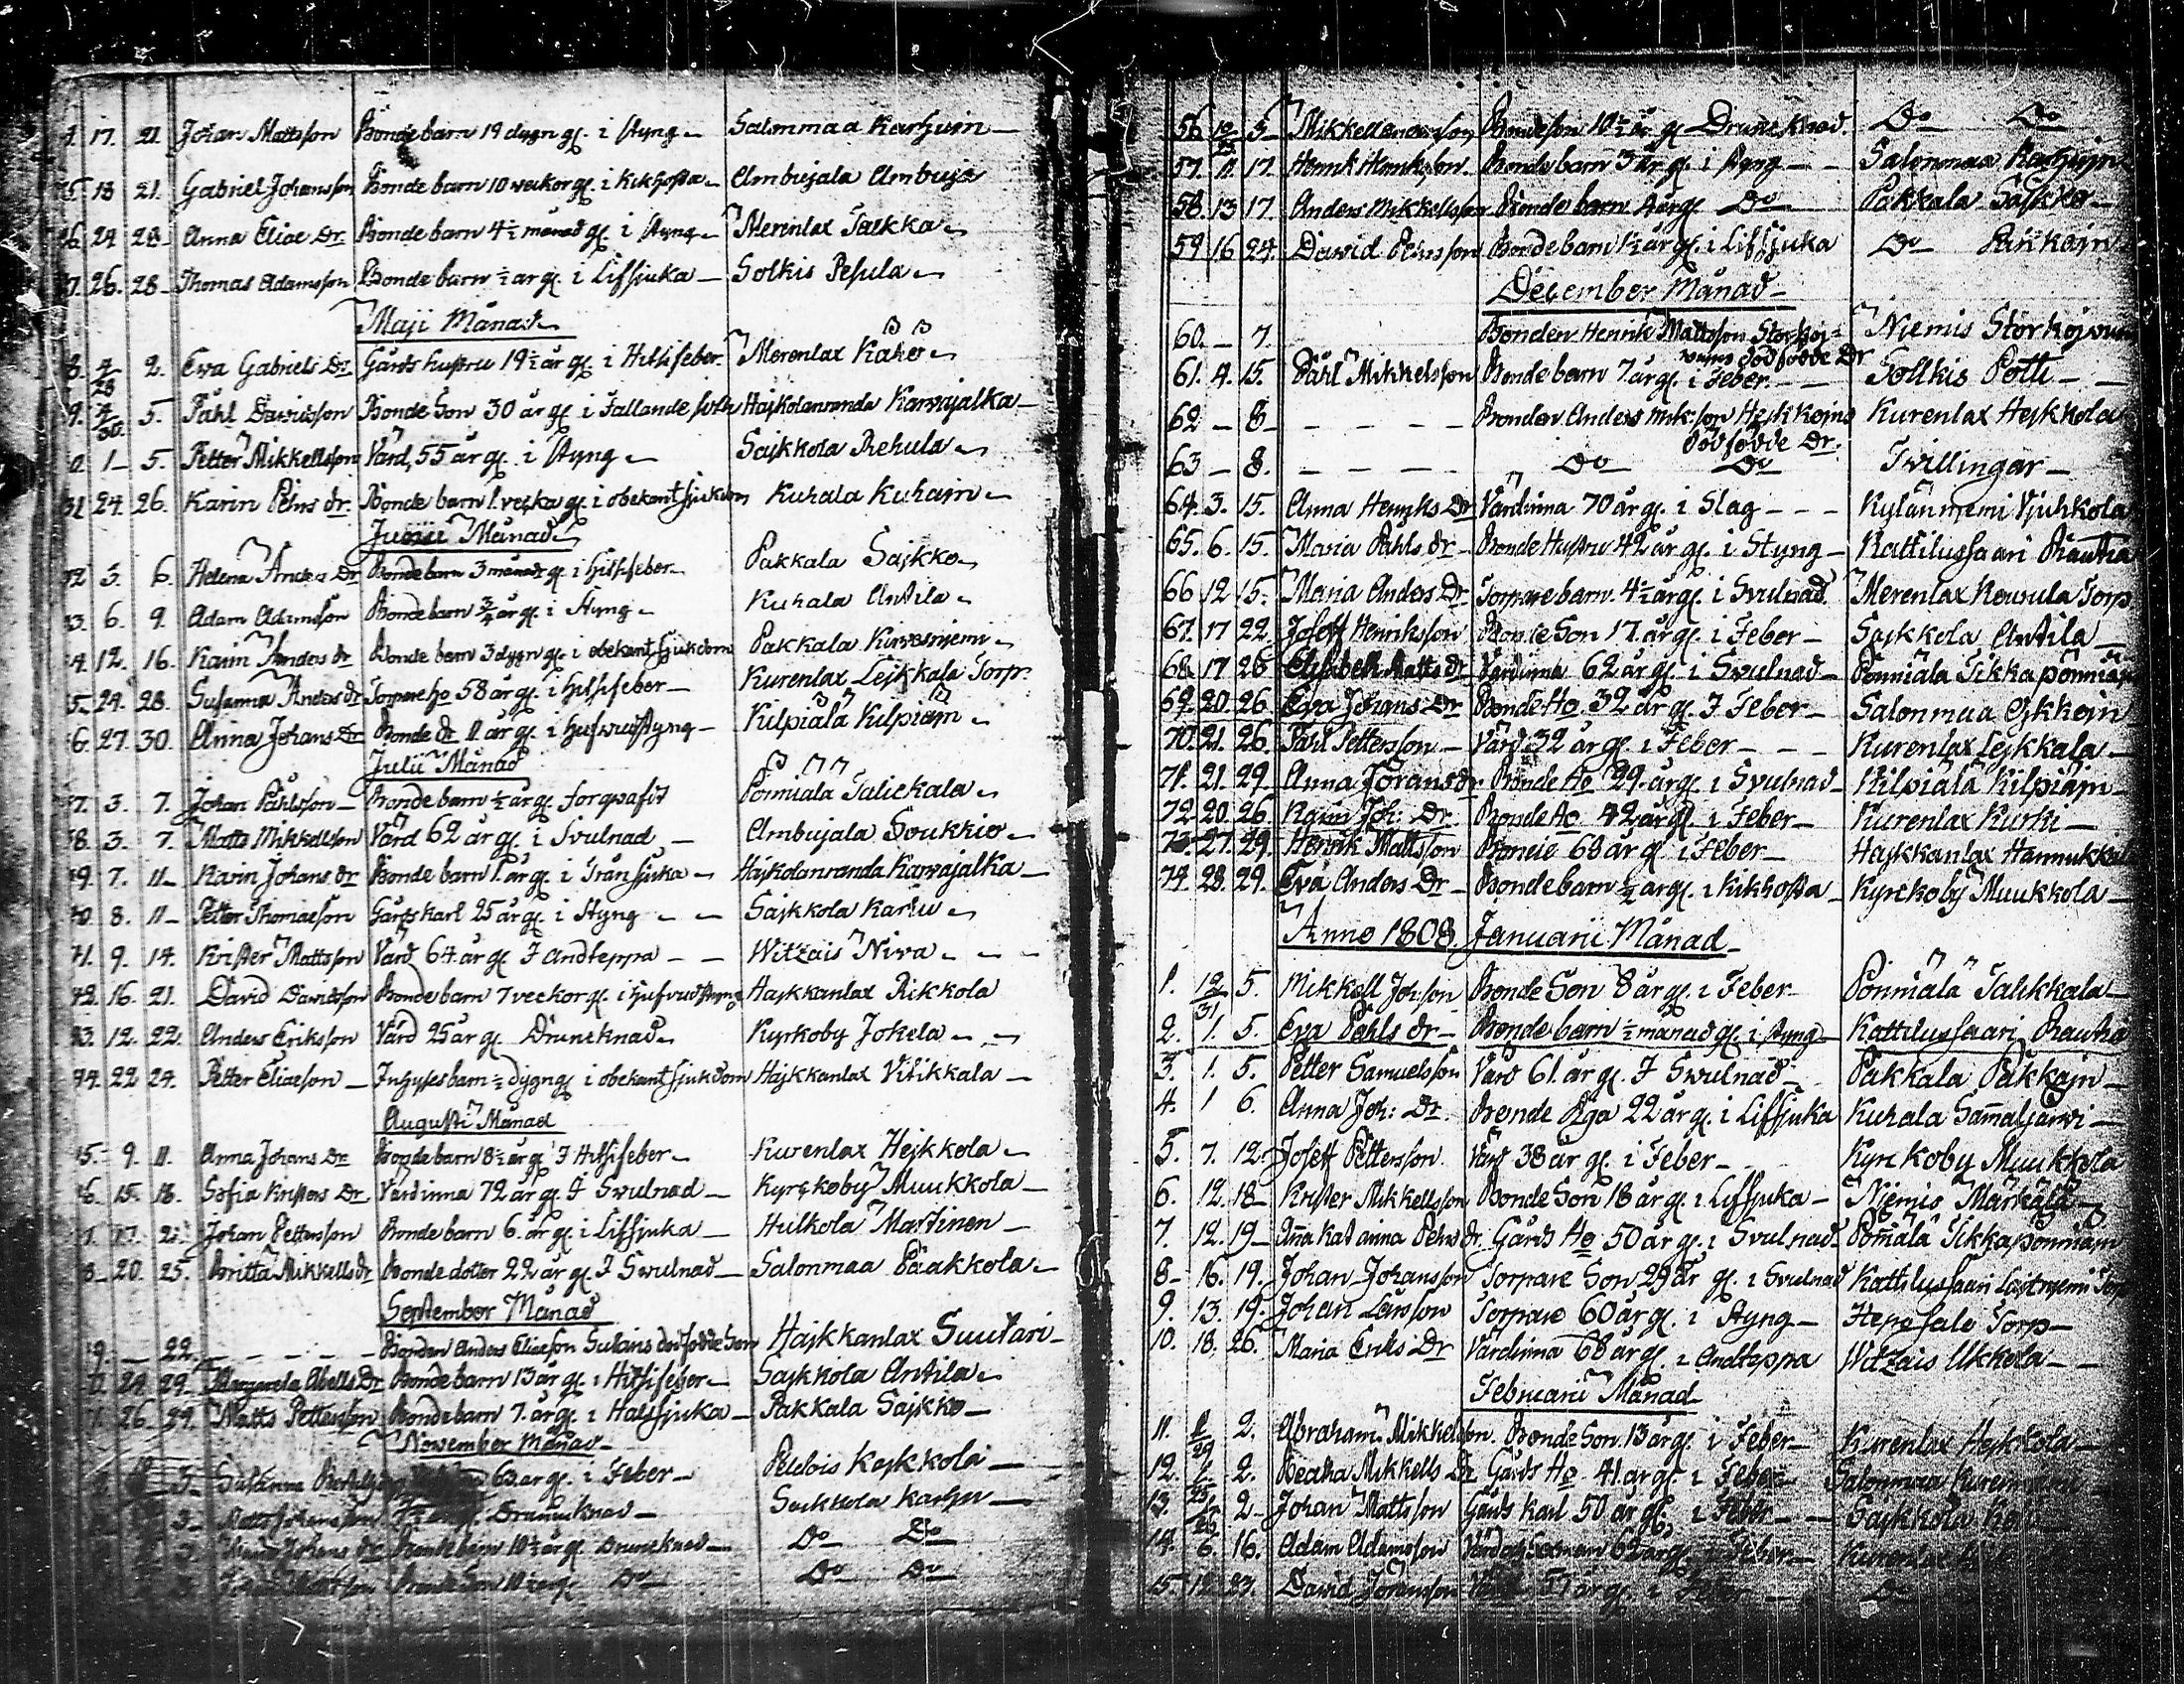 17. 21. Johan Mattsson Bondebarn 19 dygn gl. i Styng Salonmaa Karhuin
13 21. Gabriel Johansson Bonde barn 10 veckor gl. i Kikhosta Ambujala Ambuja
24 28 Anna Eliae Dr Bonde barn 4½ månad gl. i Styng Merenlax Talkka
26. 28 Thomas Adamsson Bonde barn ½ år gl. i Lifsjuka Solkis Pesula
Maji Månad
4/28 2. Eva Gabriels Dr Gårds hustru 19½ år gl. i Hitsifeber Merenlax Kaho
4/30. 5. Påhl Davidsson Bonde Son 30 år gl. i Fallande Hajkolanranda Karvajalka
1 5. Petter Mikkellsson Värd, 55 år gl. i Styng Sajkkola Rehula
31 24. 26. Karin Pehrs dr. Bonde barn 1. vecka gl. i obekant sjukdom Kuhala Kuhain
Junii Månad
32 3. 6. Helena Anders Dr Bonde barn 3 månadr gl. i hitsifeber Pakkala Sajkko
33. 6. 9. Adam Adamsson Bonde barn ¾ år gl. i Styng Kuhala Antila
34 12. 16. Karin Anders dr Bonde barn 3 dygn gl. i obekant sjukdom Pakkala
35. 24. 28. Susanna Anders dr Torpare ho 58 år gl. i hitsifeber Kurenlax Lejkkala Torp.
36. 27. 30. Anna Johans Dr Bonde dr 11 år gl. i hufvudstyng Kilpiälä Kilpiäin
Julii Månad
37. 3. 7. Johan Påhlsson Bonde barn ½ år gl. Pönniälä Talickala
38. 3. 7. Matts Mikkellsson Värd 62 år gl. i Svulnad Ambujala Soukkio
39. 7. 11 Karin Johans dr Bonde barn 1. år gl. i Tränsjuka Hajkolanranda Karvajalka
40. 8. 11 Petter Thomaeson Gårdskarl 25 år gl. i Styng Sajkkola Karhu
41. 9. 14. Krister Mattsson Värd 64 år gl. I Andteppa Witzais Niva
42. 16. 21. David Davidsson Bonde barn 7 veckor gl. i hufvudstyng Hajkkanlax Rikkola
43. 12. 22. Anders Eriksson Värd 25 år gl. Druncknad Kyrkoby Jokela
44. 22 24. Petter Eliaeson Inhyses barn ½ dygn gl. i obekant sjukdom Hajkkanlax Vitikkala
Augusti Månad
45. 9. 11. Anna Johans Dr Bonde barn 8½ år gl. I Hitsifeber Kurenlax Hejkkola
46. 15. 18. Sofia Kristers Dr Värdinna 72 år gl. I Svulnad Kyrckoby Muukkola
17. Johan Pettersson Bonde barn 6. år gl. i Lifsjuka Hulkola Martinen
8 20. 25. Britta Mikkells dr Bonde dotter 22 år gl. I Svulnad Salonmaa Paakkola
September Månad
9. 22. Bonden Anders Eliaeson Sutaris dödfödde Son Hajkkanlax Suutari
24 29 Margareta Abells Dr Bonde barn 13 år gl. i Hitsifeber Sajkkola Antila
26. 29. Matts Pettersson Bonde barn 7. år gl. i Halssjuka Pakkala Sajkko
November Månad
5 Susanna 63 år gl. i Feber Peldois Kejkkola
3 Matts Johansson Druncknad Sajkkola Karhu
3. Johans dr Bonde barn 10½ år gl. Druncknad Do Do
Bonde Son Do Do Do
56 10/25 5 Mikkell Bondeson 10½ år gl. Druncknad. Do Do
57. 11 17. Henrik Henriksson. Bonde barn 3 år gl. i Styng Salonmaa Karhuin
58. 13 17. Anders Mikkellsson Bonde barn 4 år gl. Do Pakkala Sajkko
59 16 24. David Pehrsson Bonde barn 1½ år gl. i Lifsjuka Do Pakkajn
December Månad
60. 7 Bonden Henrik Mattsson Storhoj= Niemis Storhojvan
vains dödfödde Dr
61. 4. 15. Påhl Mikkelsson Bonde barn 7 år gl. i Feber Sollkis Potti
62 8 Bonden Anders Mik:son Hejkkojns Kurenlax Hejkkola
dödfödde Dr.
63 8. Do Do Tvillingar
64. 3. 15. Anna Henriks Dr Värdinna 70 år gl. i Slag Kylänniemi Vjuhkola
65. 6. 15. Maria Påhls dr Bonde Hustru 42 år gl. i Styng Kattilussaari Rautia
66 12 15. Maria Anders Dr Torpare barn 4½ år gl. i Svulnad Merenlax Kousula Torp
67. 17 22. Joseff Henriksson Bonde Son 17. år gl. i Feber Sajkkola Antila
68. 17 26 Elisabeth Matts dr Värdinna 62 år gl. i Svulnad Pönniälä Tikkapönniäin
69. 20. 26. Eva Johans Dr Bonde Ho 32 år gl. I Feber Salonmaa
70. 21. 26. Påhl Pettersson Värd 32 år gl. i Feber Kurenlax Lejkkala
71. 21. 29. Anna Jörans dr Bonde Ho 29. år gl. i Svulnad Kilpiälä Kilpiäjn
72 20. 26. Karin Joh: Dr. Bonde Ho. 42 år gl. i Feber Kurenlax Kurki
73. 27. 29. Henrik Mattsson Bonde 68 år gl. i Feber Hajkkanlax Hannukkala
74. 28. 29. Eva Anders Dr Bonde barn ½ år gl. i Kikhosta Kyrckoby Muukkola
Anno 1808. Januarii Månad
1. 12/31 5. Mikkell Joh:son Bonde Son 8 år gl. i Feber Pönniälä Talikkala
2. 1. 5. Eva Påhls dr Bonde barn ½ månad gl. i Styng Kattilussaari Rawha
3. 1. 5. Petter Samuelsson Värd 61. år gl. I Swulnad Pakkala Pakkajn
4. 1 6. Anna Joh: Dr. Bonde Piga 22 år gl. i Lifsjuka Kuhala Samaljärvi
5. 7. 12. Joseff Pettersson Värd 38 år gl. i Feber Kyrckoby Muukkola
6. 12. 18 Krister Mikkellsson Bonde Son 18 år gl. i Lifsjuka Njemis Markälä
7. 12. 19 Anna Katarina Pehrs dr. Gårds Ho 50 år gl. i Svulnad Pönniälä Tikkapönniäjn
8 16. 19. Johan Johansson Torpare Son 29 år gl. i Svulnad Kattilussaari Lajtniemi Torp
9. 13. 19. Johan Larsson Torpare 60 år gl. i Styng Hepo Salo Torp
10. 18. 26. Maria Eriks Dr Värdinna 68 år gl. i Andteppa Witzais Ukkola
Februarii Månad
11. 1/29 2. Abraham Mikkelsson. Bonde Son 13 år gl. i Feber Kurenlax Hejkkola
12. 1/25 2. Beata Mikkells Dr Gårds Ho 41. år gl. i Feber Salonmaa
13. 1/26 2 Johan Mattsson Gårds karl 50 år gl. i Feber Sajkkola
14. 6. 16. Adam Adamsson Värd 62 år gl. i Feber Kurenlax
15. 12 23. David Jöransson 57 år gl. i Feber Do